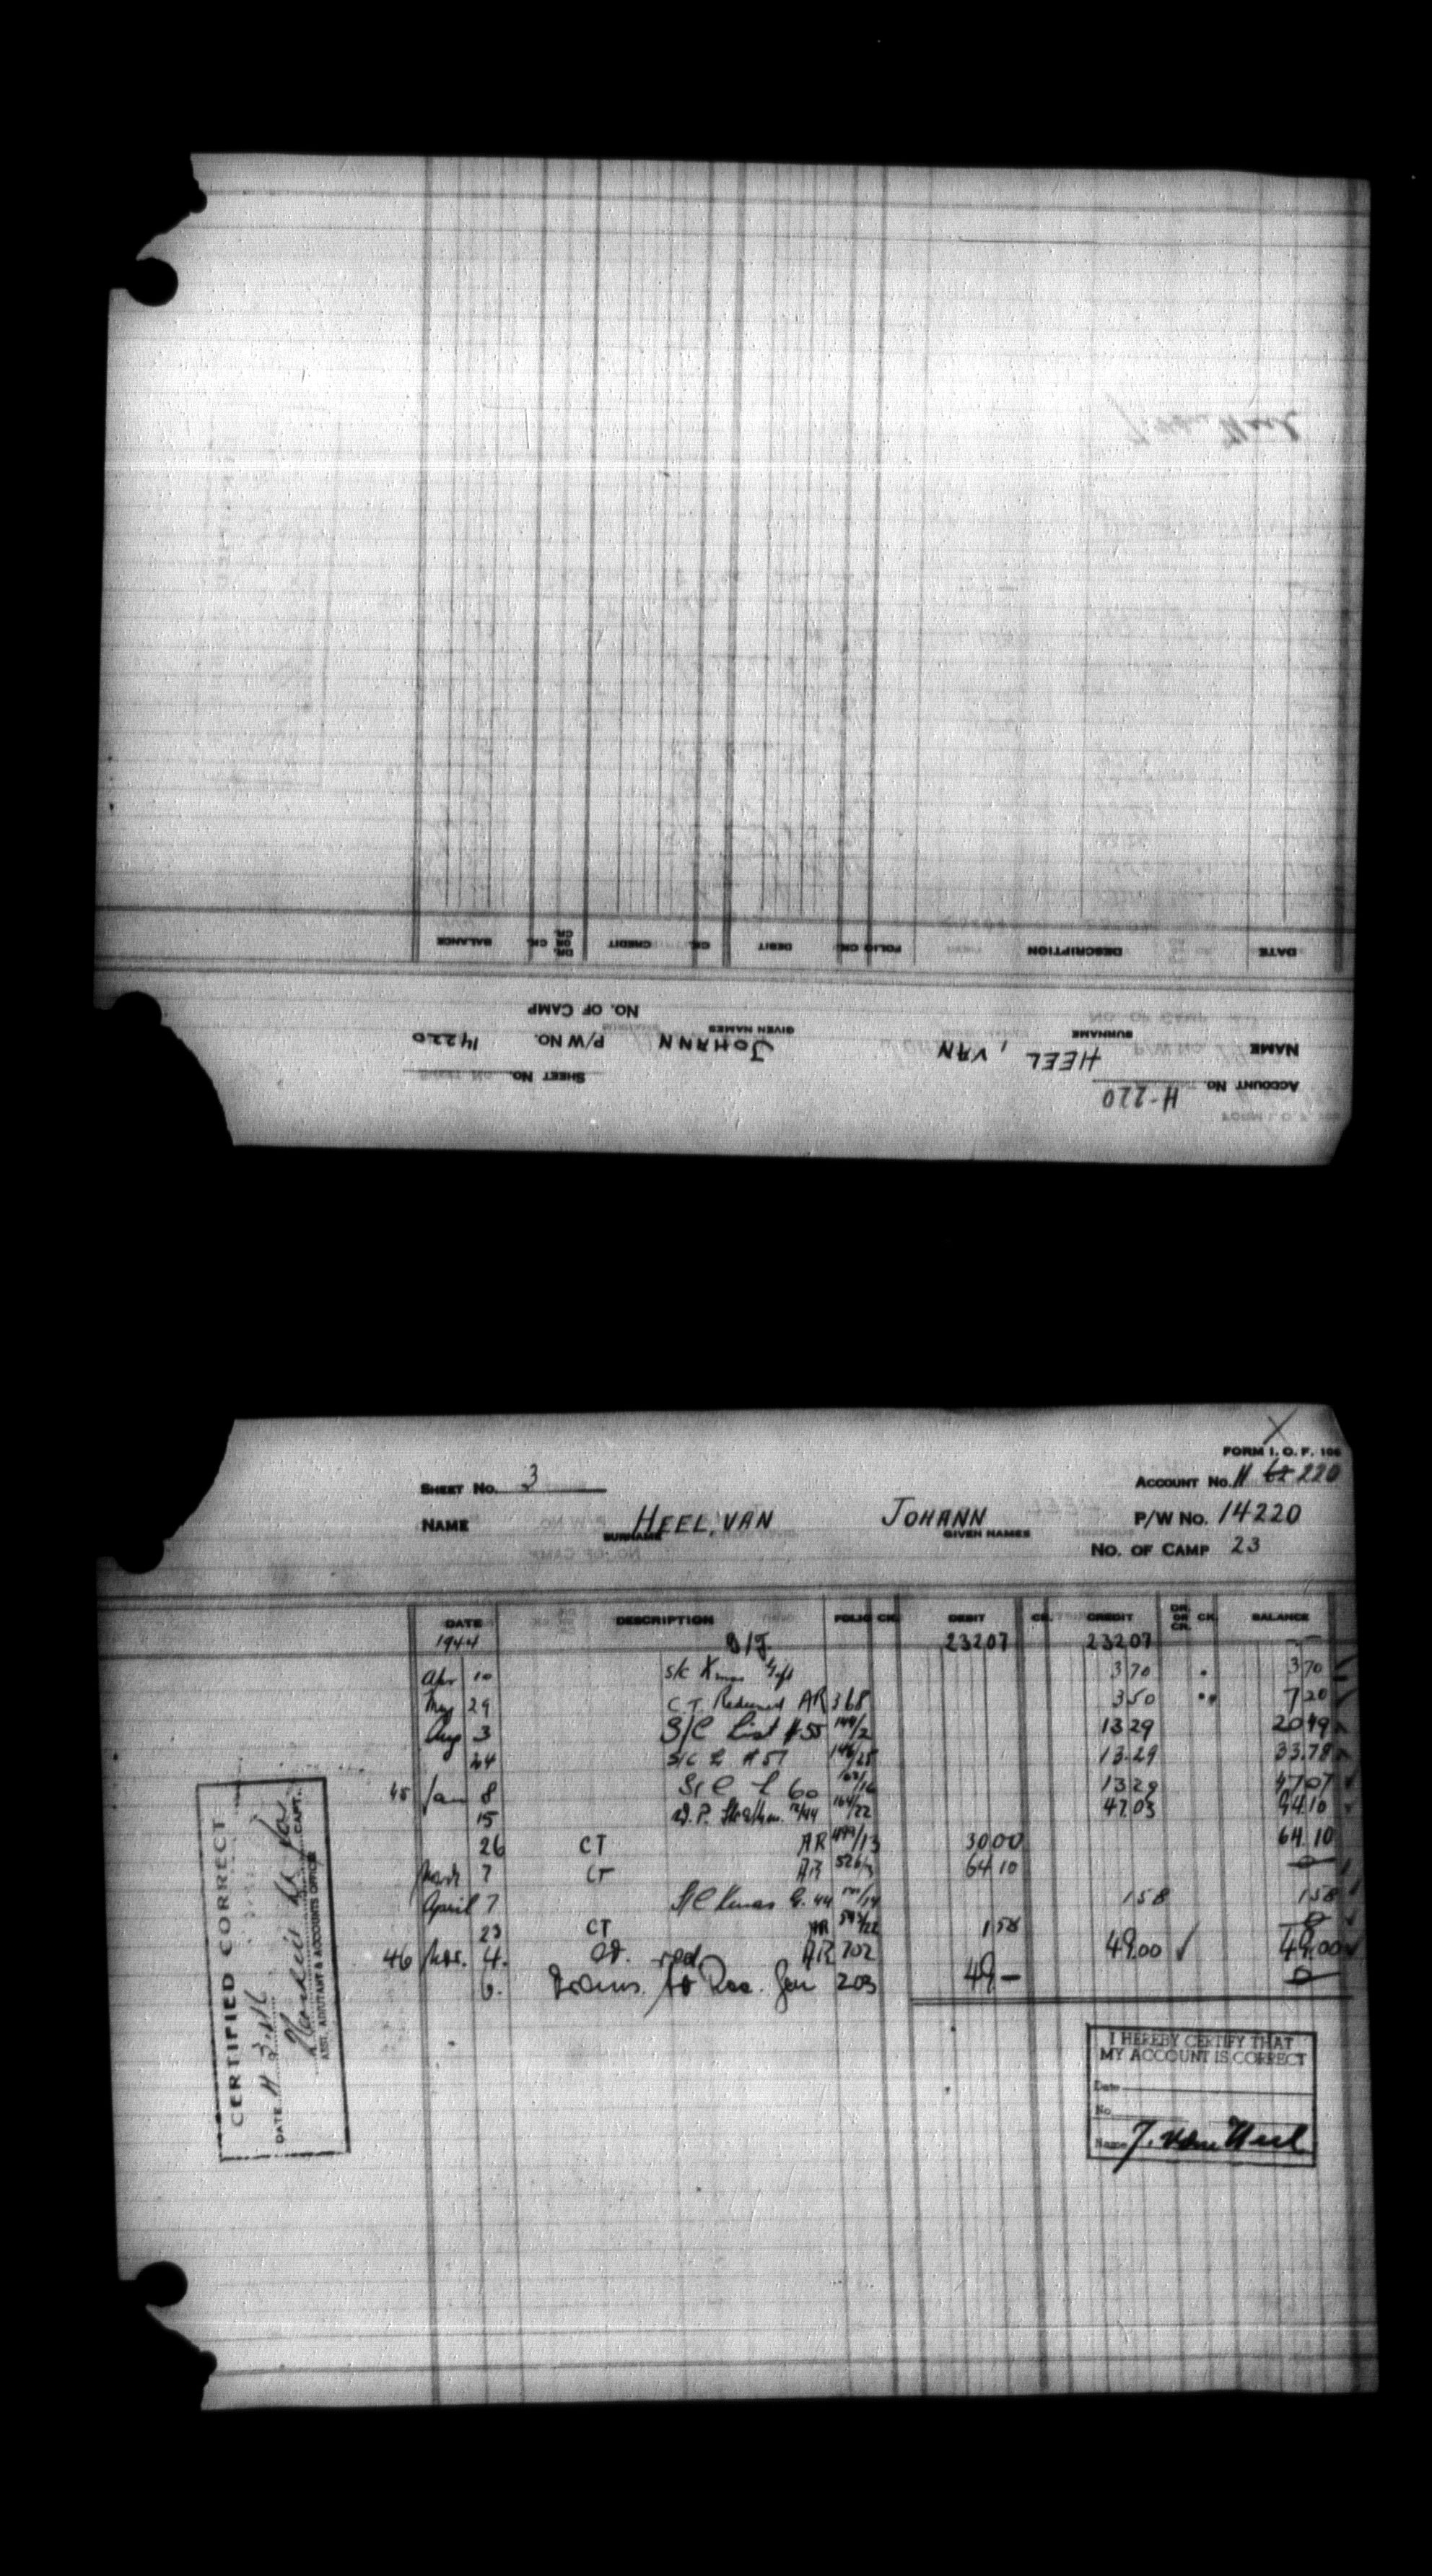 ACCOUNT No. H-220
SHEET No.
NAME HEEL, VAN JOHANN P/W No. 14220
SURNAME GIVEN NAMES
NO. OF CAMP
DATE DESCRIPTION FOLIO CK. DEBIT CK. CREDIT DR. OR CR. CK. BALANCE
FORM I. O. F. 106
SHEET No. 3 ACCOUNT No. H 220
NAME HEEL, VAN JOHANN P/W No. 14220
SURNAME GIVEN NAMES
No. OF CAMP 23
DATE DESCRIPTION FOLIO CK. DEBIT CK. CREDIT DR. OR CR. CK. BALANCE
1944 B/F. 23207 23207 —
Apr 10 S/C Xmas Gift 3 70 3 70
May 29 C.T. Redeemed AR 368 3 50 7 20
Aug 3 S/C List #55 149/2 13 29 20 49
24 S/C L #57 146/25 13.29 33.78
45 Jan 8 S/C L 60 162/16 13 29 47 07
15 W.P. 12/44 164/22 47.03 94 10
26 CT AR 499/13 30 00 64.10
March 7 CT AR 526/3 64 10 0
April 7 S/C Xmas G. 44 /14 1 58 1 58
23 CT AR 545/22 1 58 0
46 Mar. 4. CT. red. AR 702 49.00 ✓ 49.00
6. Trans. to Rec. Gen 203 49 — 0
CERTIFIED CORRECT
DATE 4.3.46
CAPT.
ASST. ADJUTANT & ACCOUNTS OFFICER
I HEREBY CERTIFY THAT
MY ACCOUNT IS CORRECT
Date
No
Name J. van Heel